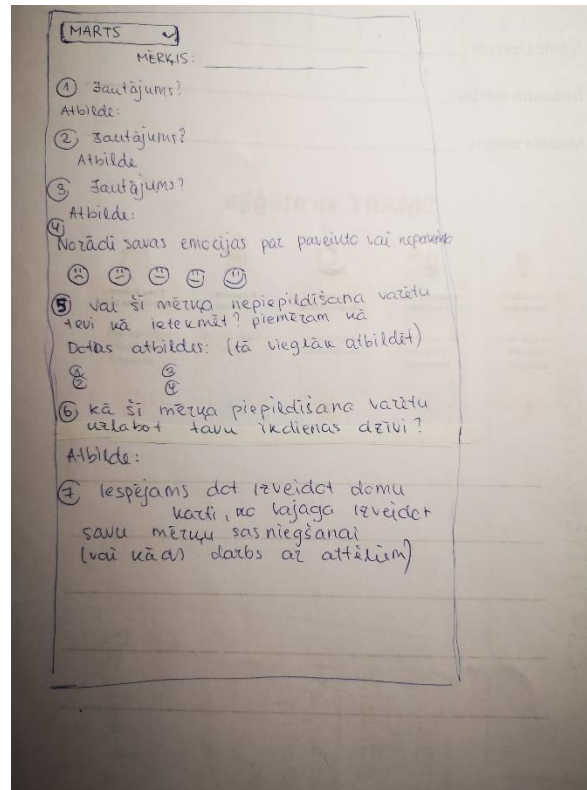 MARTS
MĒRĶIS:
① Jautājums?
Atbilde:
② Jautājums?
Atbilde
③ Jautājums?
Atbilde:
④
Norādi savas emocijas par paveikto vai nepaveikto
⑤ Vai šī mērķa nepiepildīšana varētu
tevi kā ietekmēt? piemēram kā
Dotās atbildes: (tā vieglāk atbildēt)
① ③
② ④
⑥ kā šī mērķa piepildīšana varētu
uzlabot tavu ikdienas dzīvi?
Atbilde:
⑦ Iespējams dot izveidot domu
karti, ko vajag izveidot
savu mērķu sasniegšanai
(vai kāds darbs ar attēliem)